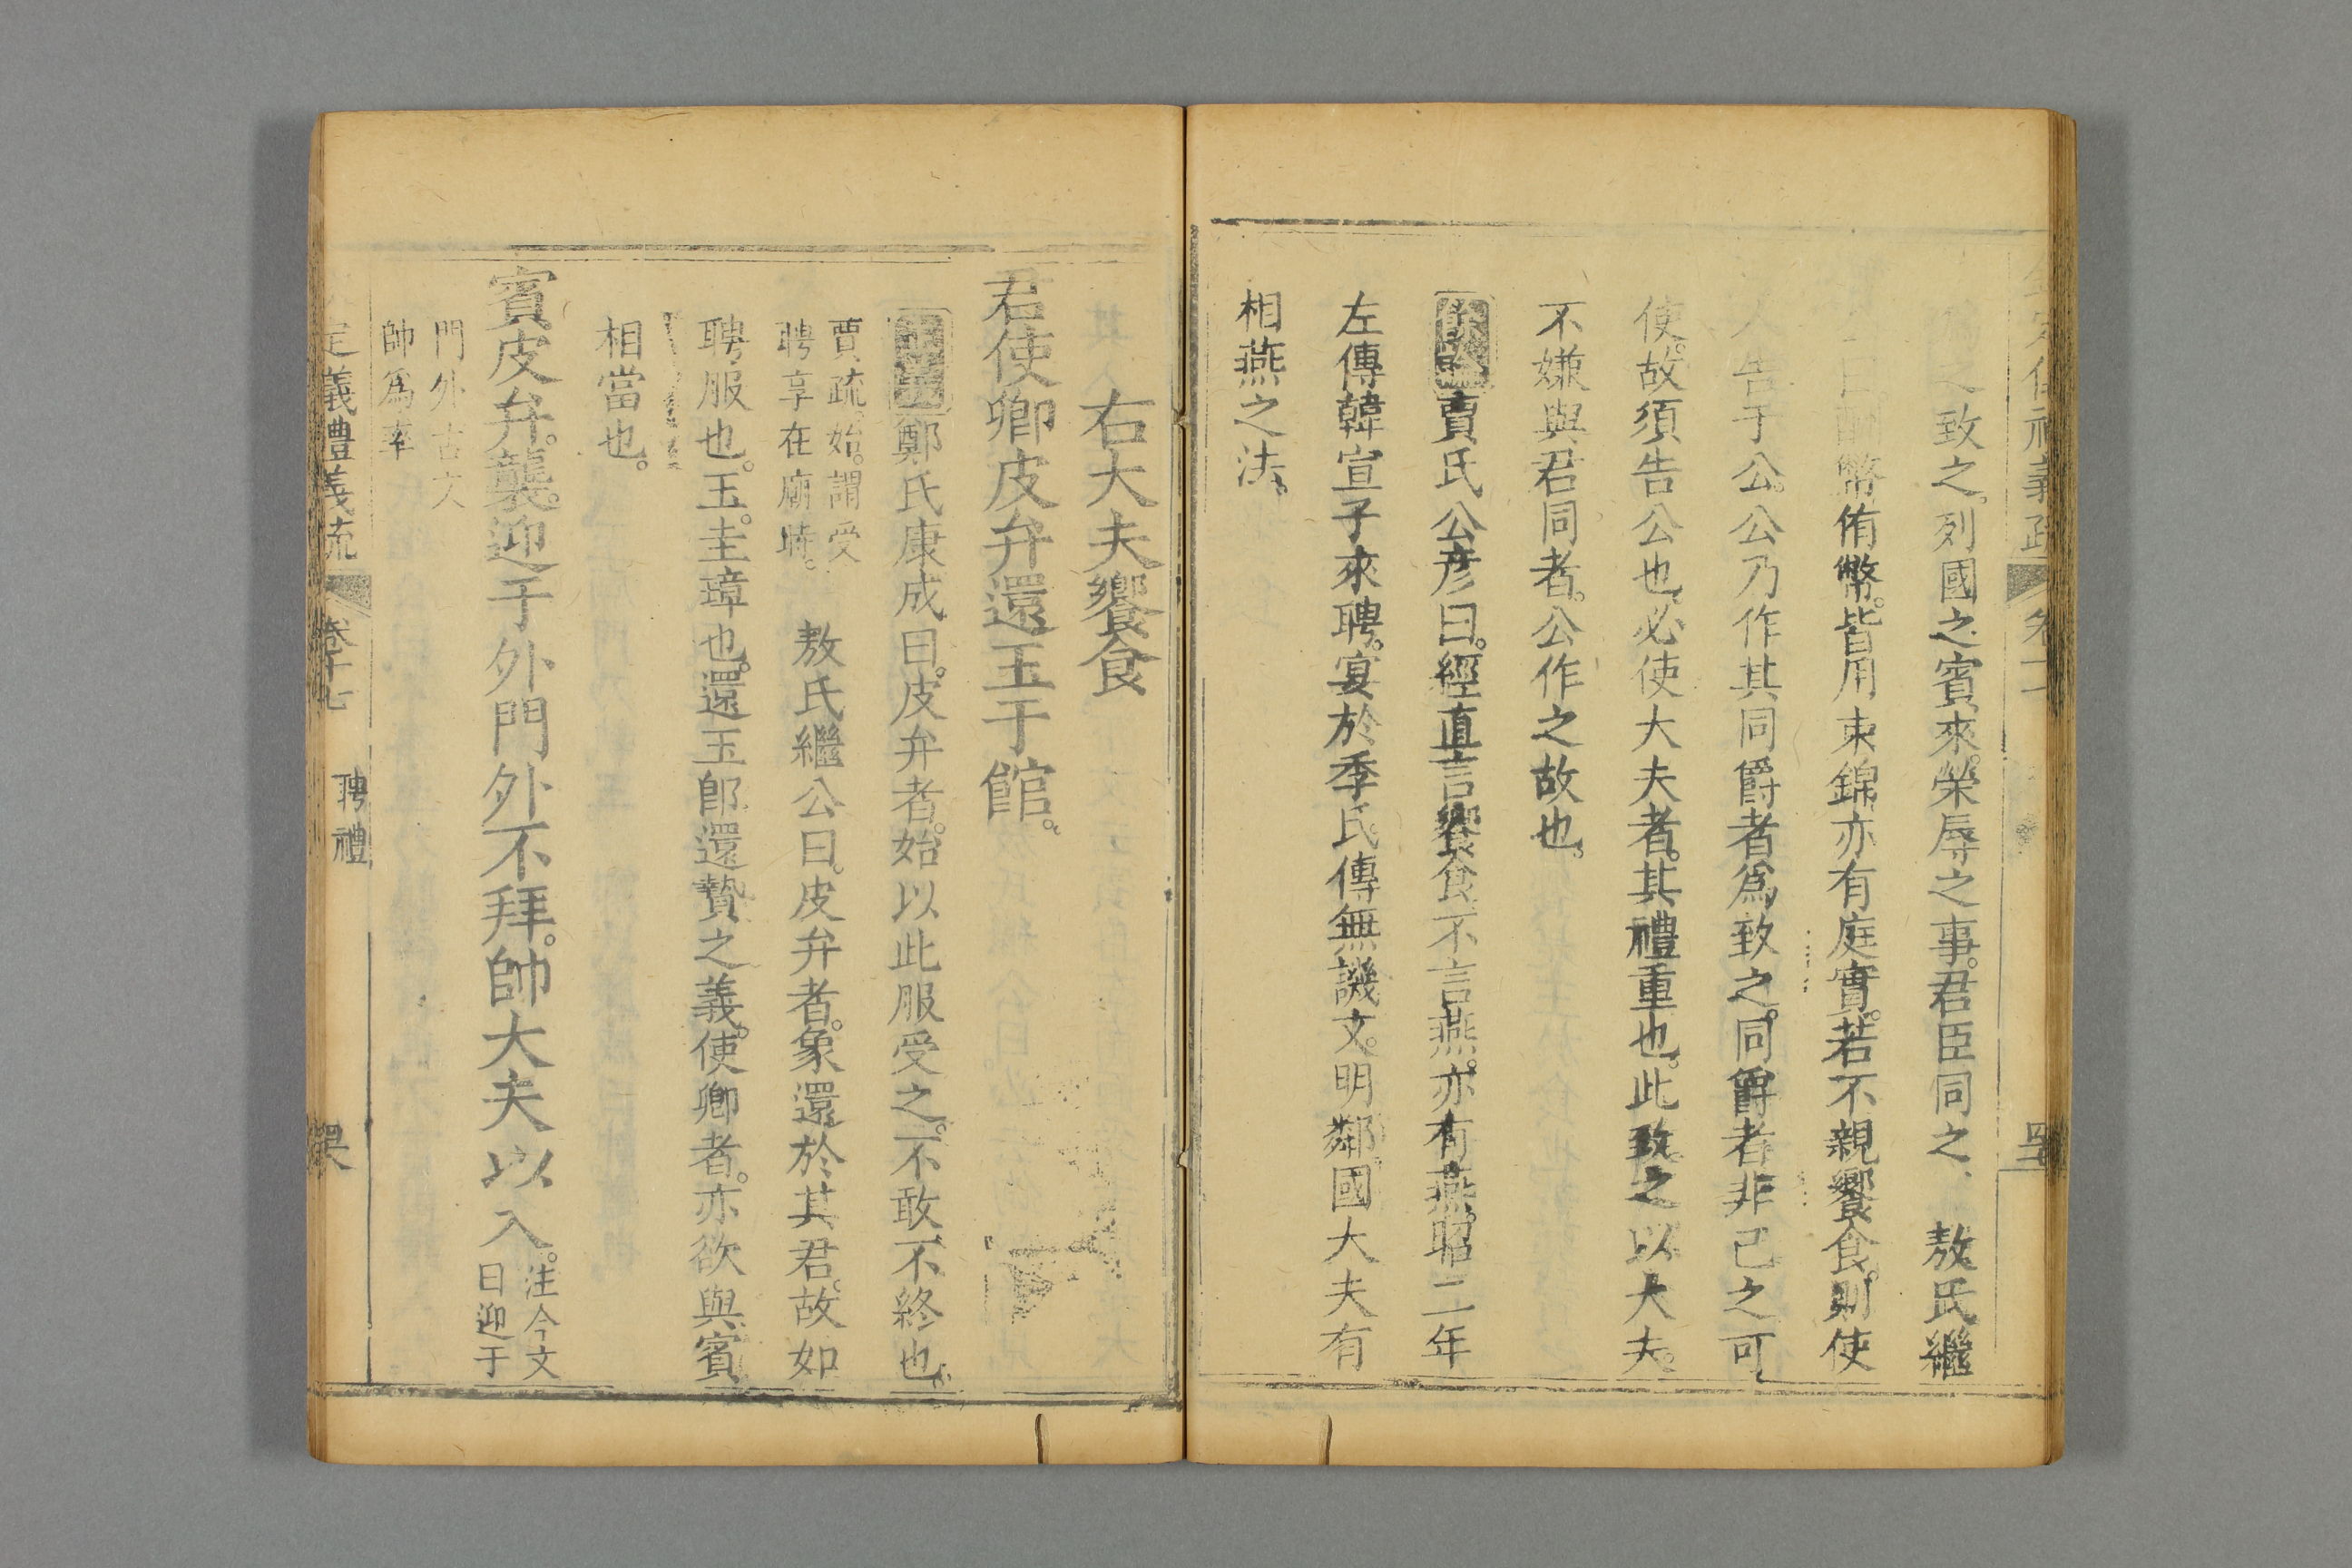 定儀禮義疏 卷十
致之。列國之賓來。榮辱之事。君臣同之、 敖氏繼
曰酬幣侑幣。皆用束錦亦有庭實。若不親饗食。則使
人告于公。公乃作其同爵者爲致之。同爵者非己之可
使。故須告公也。必使大夫者。其禮重也。此致之以大夫。
不嫌與君同者。公作之故也。
餘論賈氏公彦曰。經直言饗食不言燕。亦有燕。昭二年
左傳韓宣子來聘。宴於季氏傳無譏文。明鄰國大夫有
相燕之法。
右大夫饗食
君使卿皮弁還玉于館。
正義鄭氏康成曰。皮弁者。始以此服受之。不敢不終也。
賈疏。始。謂受
聘享在廟時。
敖氏繼公曰。皮弁者。象還於其君。故如
聘服也。玉。圭璋也。還玉卽還贄之義。使卿者。亦欲與賓
相當也。
賓皮弁。襲。迎于外門外不拜。帥大夫以入。
注今文
曰迎于
門外古文
帥爲率
定義禮義疏 卷十七 聘禮